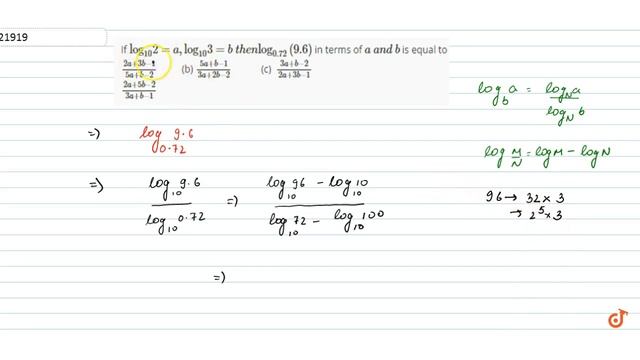 21919
If log₁₀2 = a, log₁₀3 = b then log₀.₇₂ (9.6) in terms of a and b is equal to
(2a+3b-1)/(5a+b-2) (b) (5a+b-1)/(3a+2b-2) (c) (3a+b-2)/(2a+3b-1)
(2a+5b-2)/(3a+b-1)
log_b a = log_N a / log_N b
⇒) log₀.₇₂ 9.6
log M/N = log M - log N
⇒) log₁₀ 9.6 / log₁₀ 0.72 ⇒) (log₁₀ 96 - log₁₀ 10) / (log₁₀ 72 - log₁₀ 100)
96 → 32 × 3
→ 2⁵ × 3
⇒)